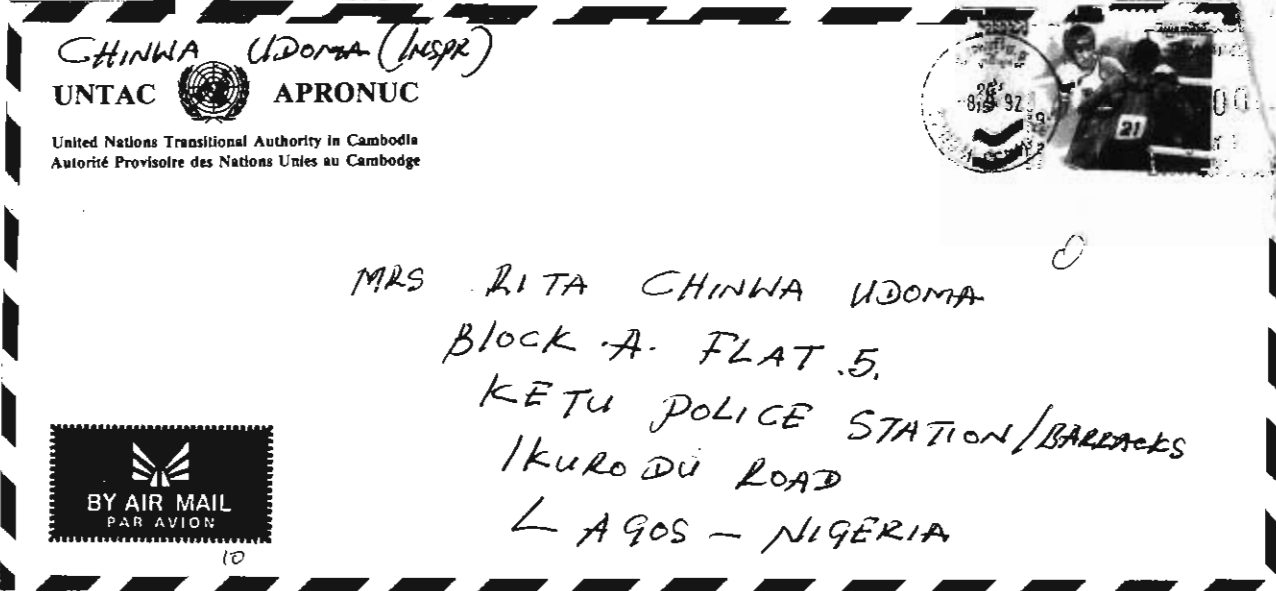 CHINWA UDOMA (INSPR)
UNTAC APRONUC
United Nations Transitional Authority in Cambodia
Autorité Provisoire des Nations Unies au Cambodge
92
21
MRS RITA CHINWA UDOMA
BLOCK .A. FLAT .5.
KETU POLICE STATION/BARRACKS
IKURODU ROAD
LAGOS – NIGERIA
BY AIR MAIL
PAR AVION
10